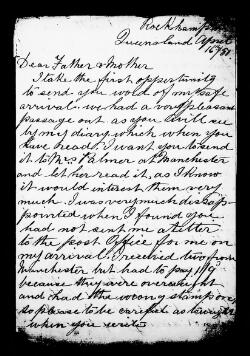 Rockhampton
Queensland April
16/81
Dear Father & Mother
I take the first opportunity
to send you word of my safe
arrival. we had a very pleasant
passage out as you will see
by my diary which when you
have read. I want you to send
it to Mrs Palmer at Manchester
and let her read it, as I know
it would interest them very
much. I was very much disapp-
pointed when I found you
had not sent me a letter
to the post Office for me on
my arrival. I received two from
Manchester but had to pay
because they were overweight
and had the wrong stamp on,
so please to be careful as to weight
when you write